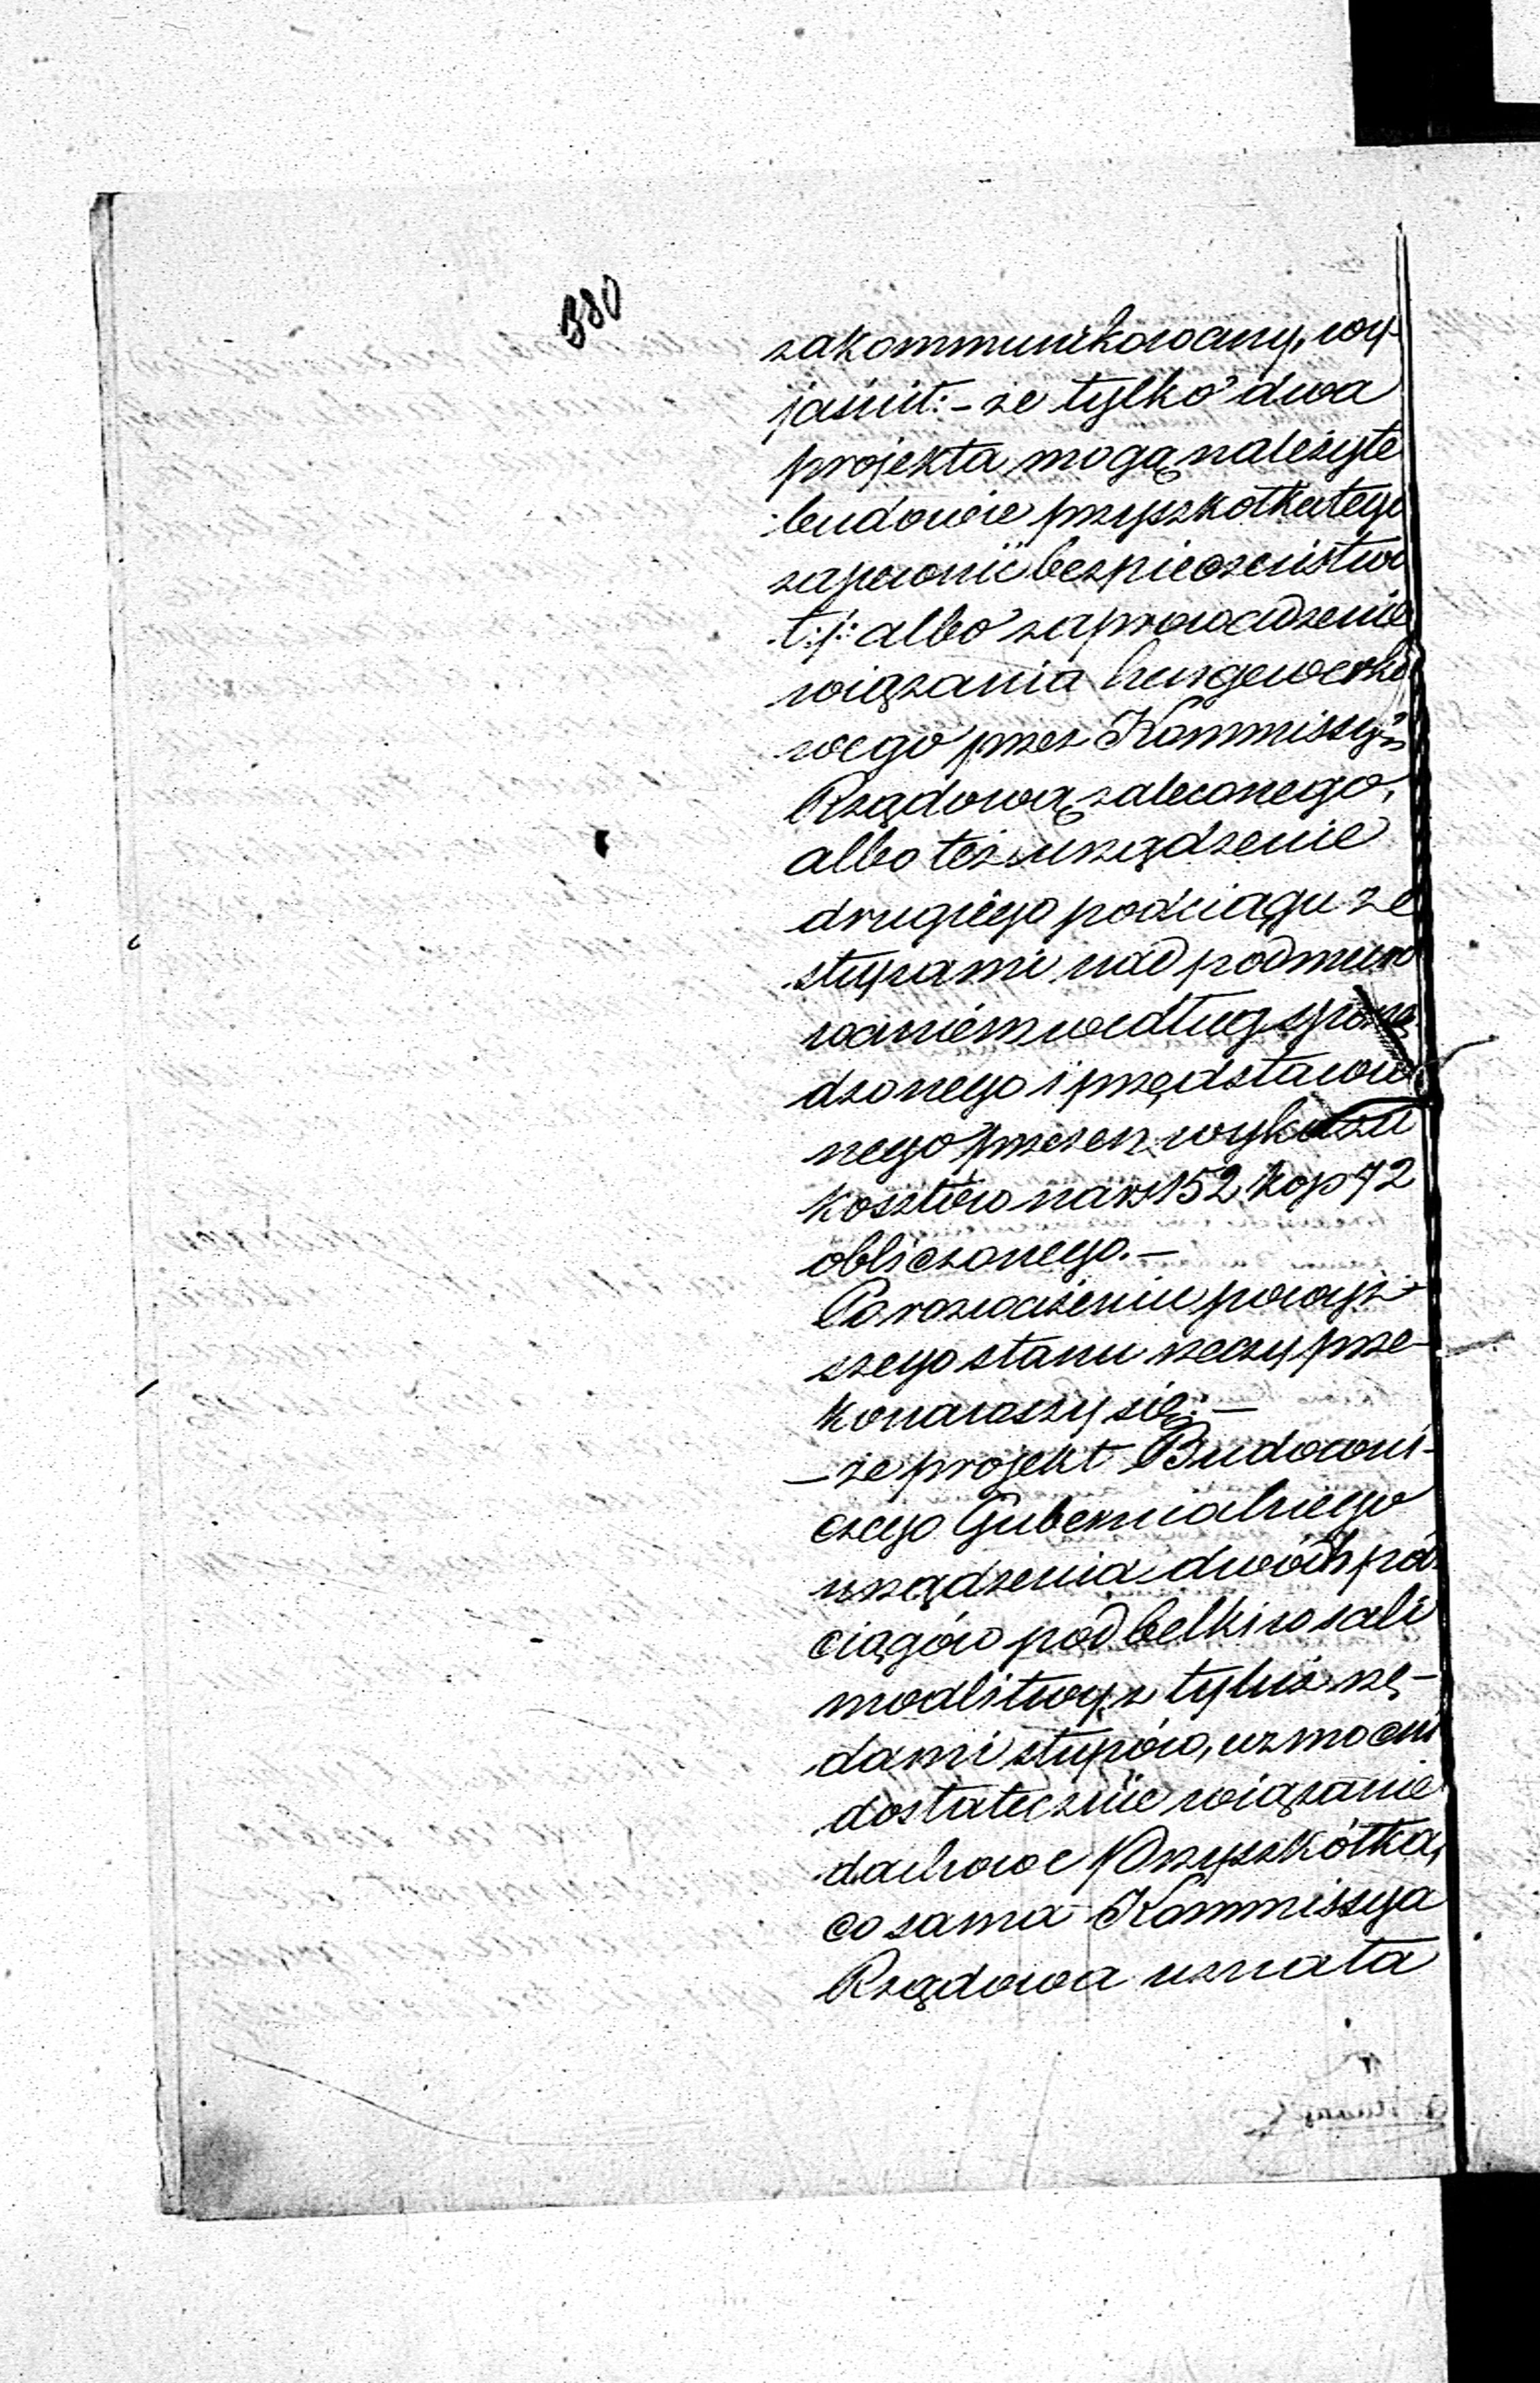 380
zakommunikowany, wy-
jaśnił:– że tylko dwa
projekta mogą należyte
budowie przyszkółka tego
zapewnić bezpieczeństwo
t:j: albo zaprowadzenie
wiązania hengewerko
wego przez Kommissyą
Rządową zaleconego,
albo też urządzenie
drugiego podciągu ze
słupami nad podmuro
waniem według sporzą
dzonego i przedstawio
nego przezeń wykazu
kosztów na rs 152 kop 72
obliczonego.–
Po rozważeniu powyż-
szego stanu rzeczy prze-
konawszy się:–
– że projekt Budowni-
czego Gubernialnego
urządzenia dwóch pod
ciągów pod belki w sali
modlitwy z tyluż rzę-
dami słupów, wzmocni
dostatecznie wiązanie
dachowe Przyszkółka,
co sama Kommissya
Rządowa uznała